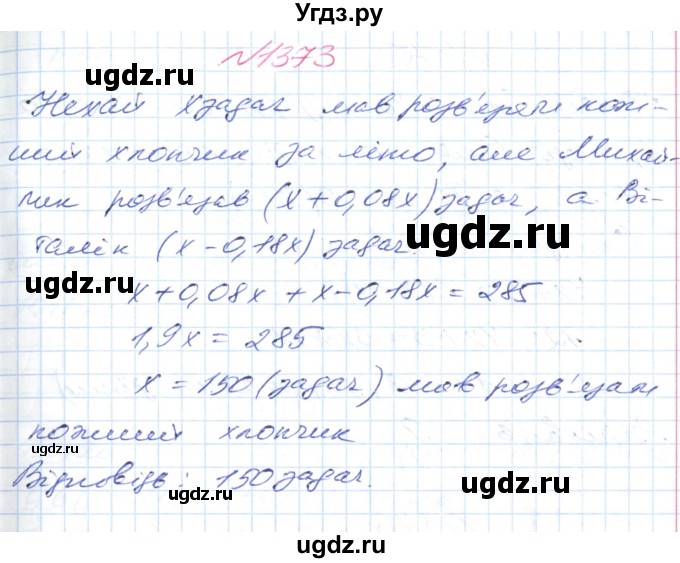 Угдз.ру
№1373
Нехай x задач мав розв'язати кож-
ний хлопчик за літо, але Михай-
лик розв'язав (x + 0,08x) задач, а Ві-
талік (x - 0,18x) задач.
x + 0,08x + x - 0,18x = 285
1,9x = 285
x = 150 (задач) мав розв'язати
кожний хлопчик
Відповідь: 150 задач.
ugdz.ru
ugdz.ru
ugdz.ru
ugdz.ru
ugdz.ru
ugdz.ru
ugdz.ru
ugdz.ru